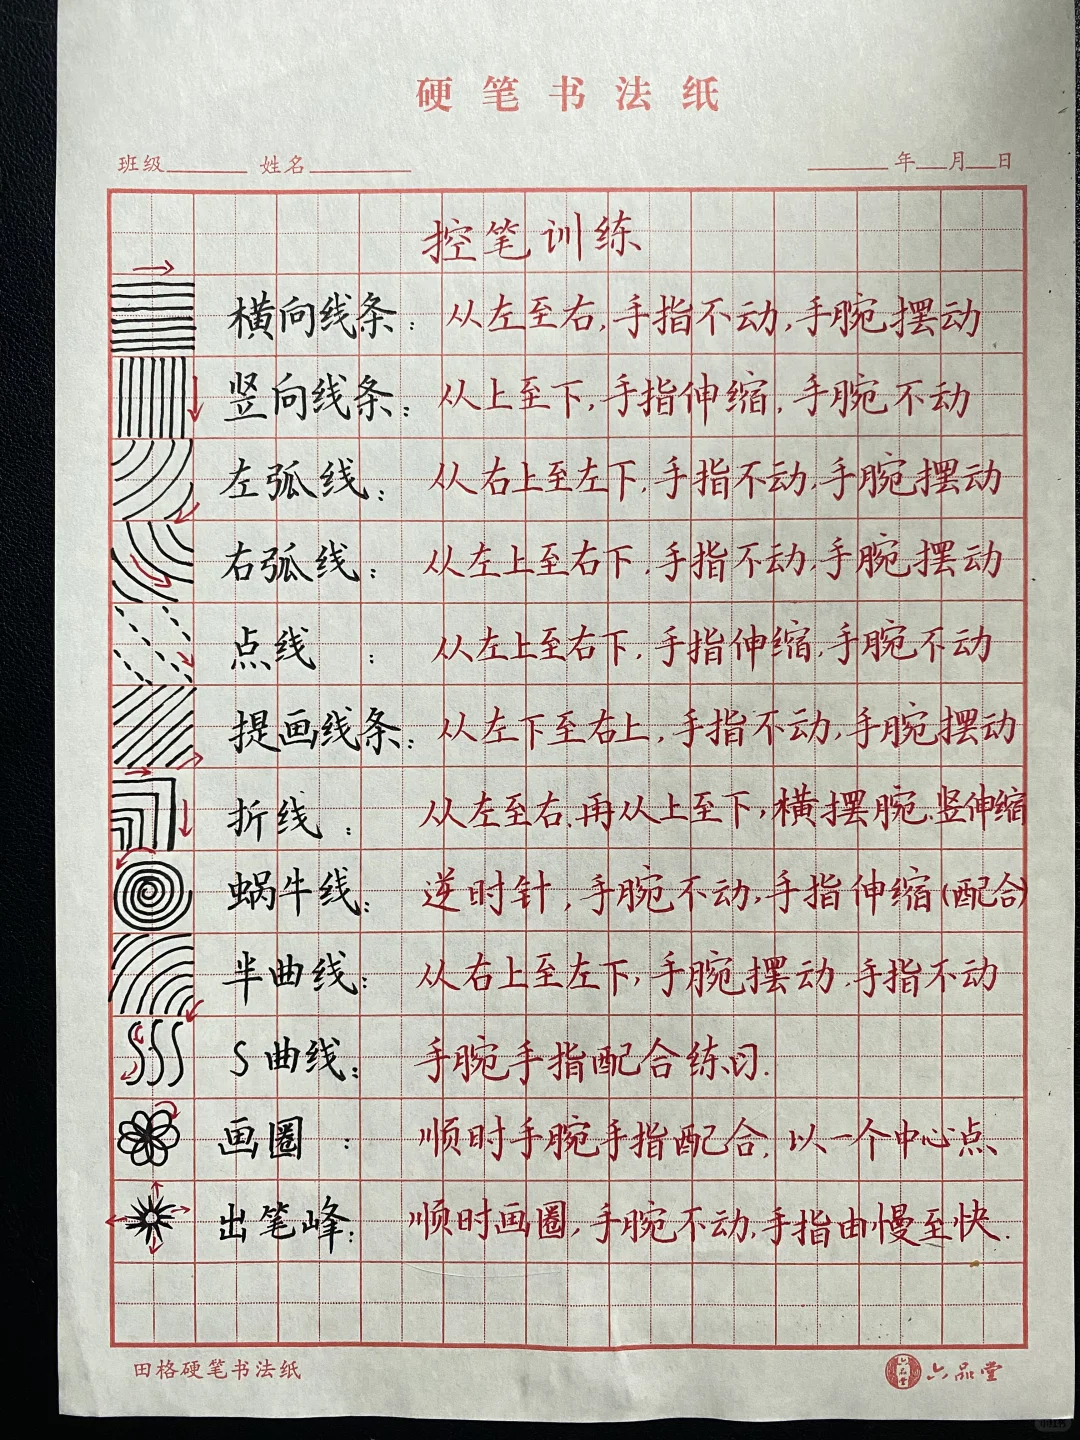 硬笔书法纸
班级 姓名 年 月 日
控笔训练
横向线条：从左至右，手指不动，手腕摆动
竖向线条：从上至下，手指伸缩，手腕不动
左弧线：从右上至左下，手指不动，手腕摆动
右弧线：从左上至右下，手指不动，手腕摆动
点线：从左上至右下，手指伸缩，手腕不动
提画线条：从左下至右上，手指不动，手腕摆动
折线：从左至右，再从上至下，横摆腕，竖伸缩
蜗牛线：逆时针，手腕不动，手指伸缩（配合）
半曲线：从右上至左下，手腕摆动，手指不动
S曲线：手腕手指配合练习.
画圈：顺时手腕手指配合，以一个中心点、
出笔峰：顺时画圈，手腕不动，手指由慢至快.
田格硬笔书法纸 六品堂 六品堂